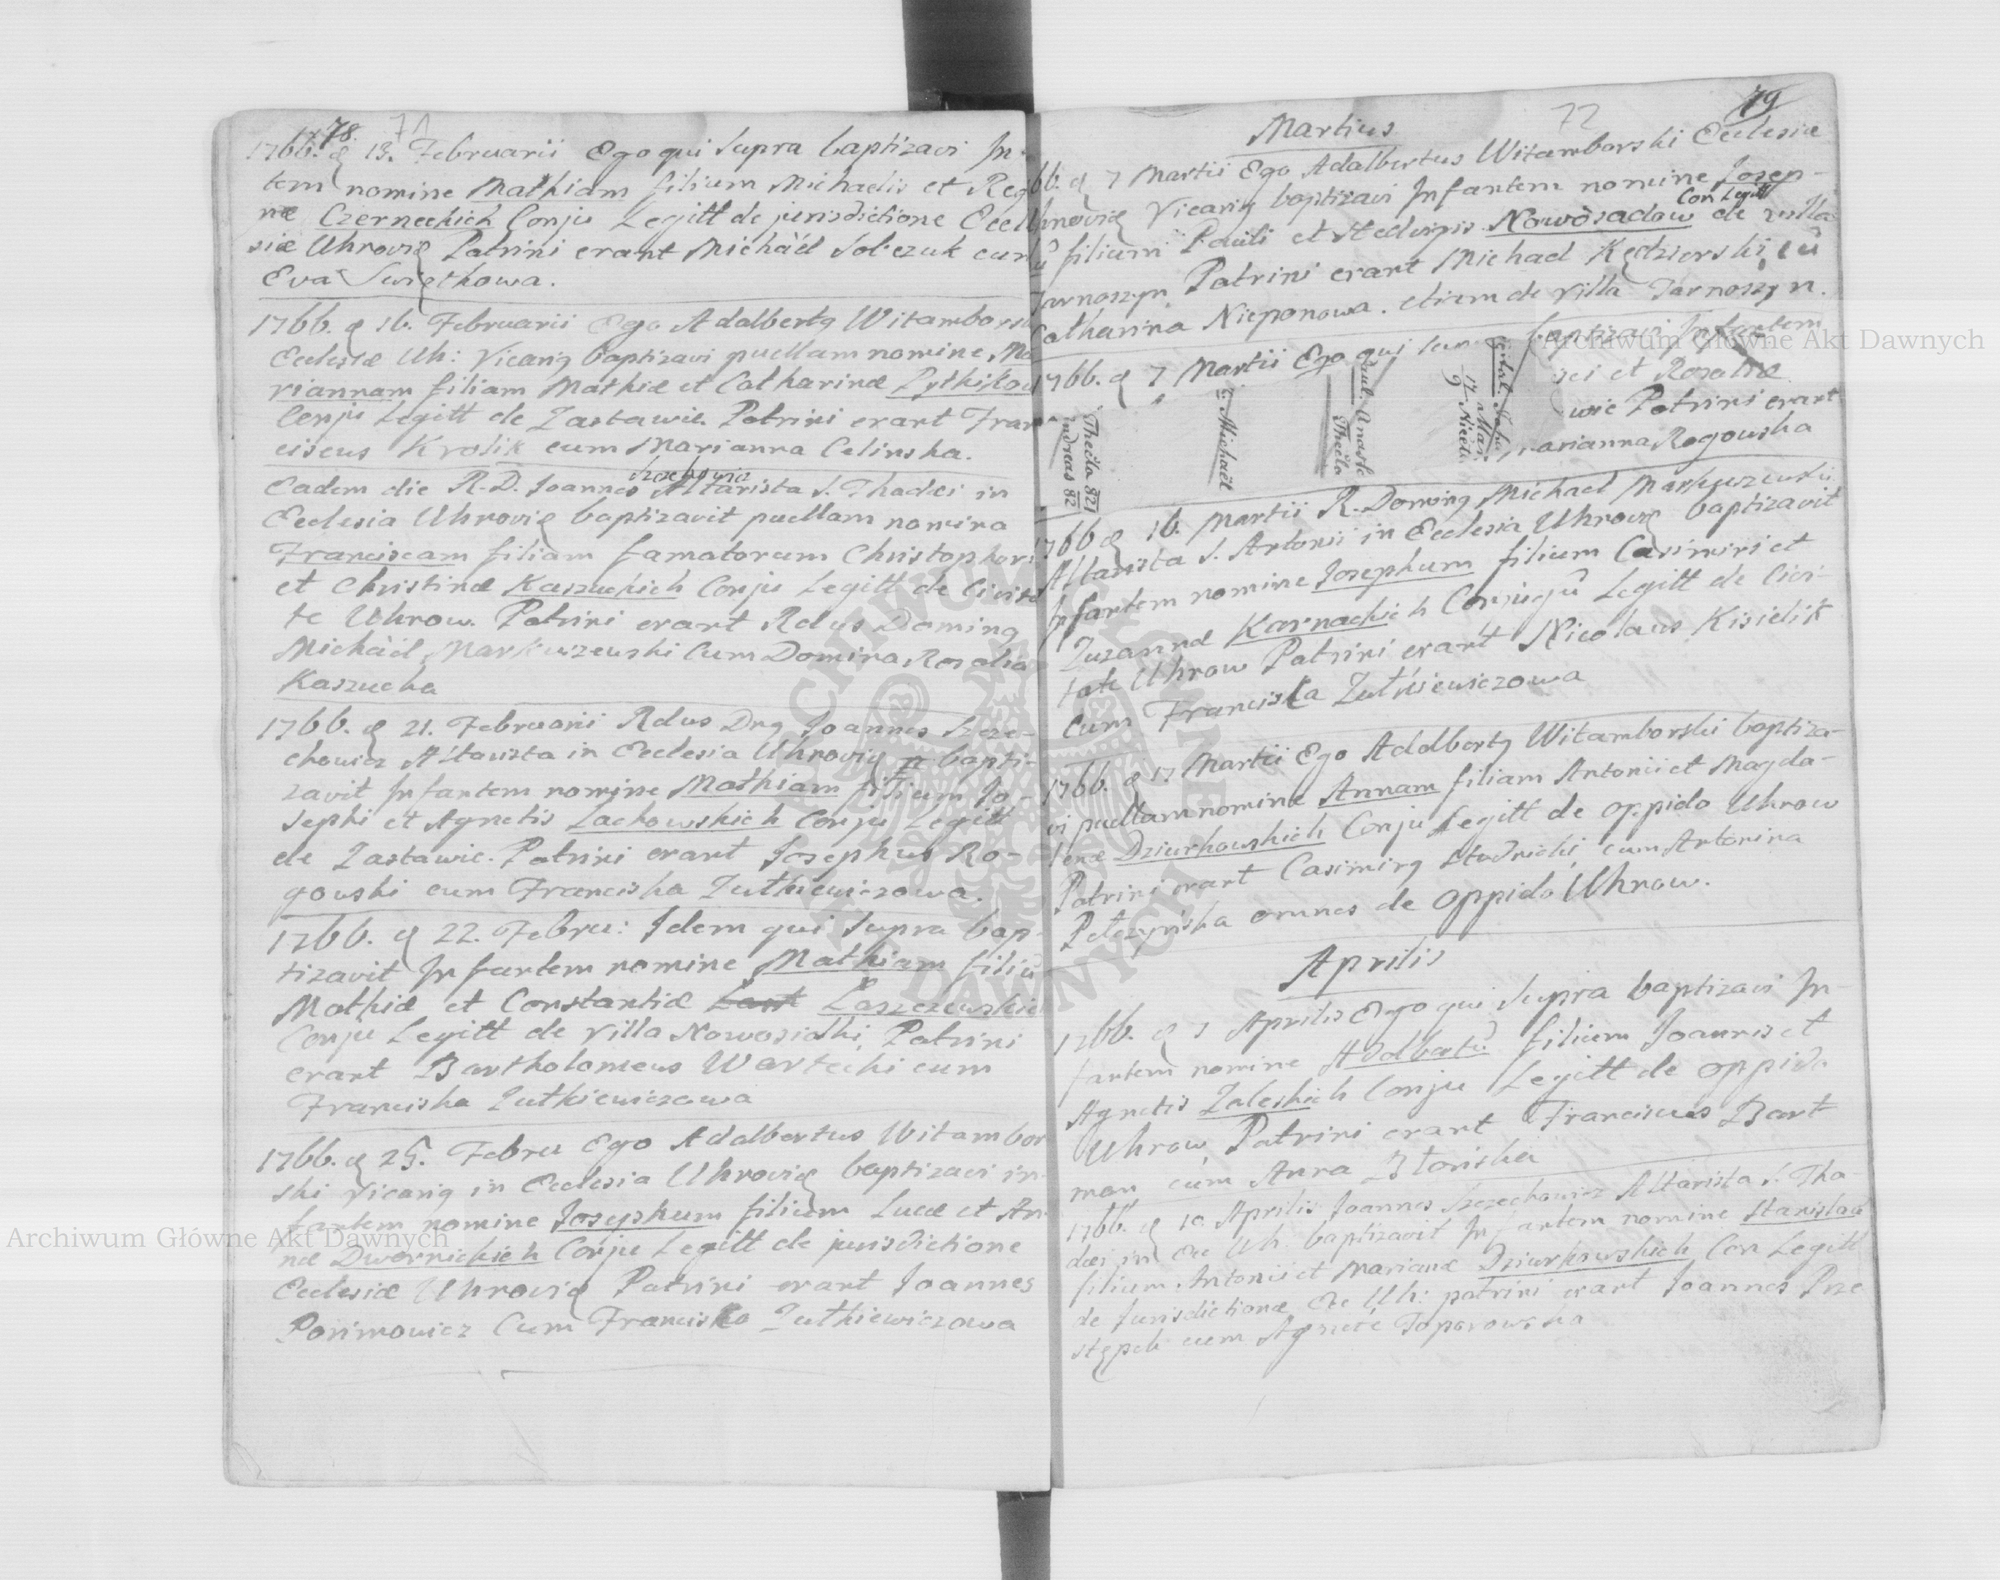 78. 71
1766. d 13. Februarii Ego qui Supra baptizavi In-
tem nomine Mathiam filium Michaelis et Regi
næ Czerneckich Conju Legitt de jurisdictione Eccl
siæ Uhrovię Patrini erant Michàél Sobczuk cum
Eva Swiętkowa.
1766. d 16. Februarii Ego Adalbertg Witambors
Ecclesiæ Uh: Vicarig baptizavi puellam nomine Ma
riannam filiam Mathiæ et Catharinæ
Conju Legitt de Zastawie. Patrini erant Fran
ciscus Krolik cum Marianna Celinska.
Szechowicz
Eadem die R. D. Joannes Altarista S. Thadei in
Ecclesia Uhrovię baptizavit puellam nomina
Franciscam filiam famatorum Christophori
et Christinæ Kaszuckich Conju Legitt de Civita
te Uhrow. Patrini erant Rdus Doming
Michàél Markuszewski Cum Domina Rosalia
Kaszucka
1766. d 21. Februarii Rdus Dng Joannes Szcze-
chowicz Altarista in Ecclesia Uhrovię bapti-
zavit Infantem nomine Mathiam filium Jo-
sephi et Agnetis Lachowskich Conju Legitt
de Zastawie. Patrini erant Josephus Ro-
gowski cum Franciska Zutkiewiczowa.
1766. d 22. Febru: Idem qui Supra bap-
tizavit Infantem nomine Mathiam filiũ
Mathiæ et Constantiæ Laszczewskich
Conju Legitt de Villa Nowosiolki, Patrini
erant Bartholomeus Wartecki cum
Franciska Zutkiewiczowa
1766. d 25. Febru Ego Adalbertus Witambor
ski Vicarig in Ecclesia Uhrovię baptizavi in-
fantem nomine Josephum filium Lucæ et An
næ Dwernickich Conju Legitt de jurisdictione
Ecclesiæ Uhrovię Patrini erant Joannes
Porimowicz Cum Franciska Zutkiewiczowa
72 79
Martius
66. d 7 Martii Ego Adalbertus Witamborski Ecclesiæ
hrovię Vicarig baptizavi Infantem nomine Josep-
Con Legitt
ũ filium Pauli et Hedvigis Nowosadow de villa
Tarnoszyn, Patrini erant Michael Kędzierski, cũ
Catharina Nieponowa. etiam de Villa Tarnoszyn.
1766. d 7 Martii Ego qui baptizavi Infantem
et Rosaliæ
wie Patrini erant
Marianna Rogowska
Thecla 82
Andreas 82
Michaël
Paul. Anast.
Thecla
17
9
1766 d 16. Martii R. Doming Michael Markuszewski
Altarista S. Antonii in Ecclesia Uhrovię baptizavit
Infantem nomine Josephum filium Casimiri et
Zuzannæ Karnackich Conjugũ Legitt de Civi-
tate Uhrow Patrini erant Nicolaus Kisielik
cum Franciska Zutkiewiczowa
1766. d 17 Martii Ego Adalbertg Witamborski baptiza-
vi puellam nomine Annam filiam Antonii et Magda-
lenæ Dziurkowskich Conju Legitt de oppido Uhrow
Patrini erant Casimirg Studnicki, cum Antonina
Pelczyńska omnes de oppido Uhrow.
Aprilis
1766. d 7 Aprilis Ego qui Supra baptizavi In-
fantem nomine Adalbertũ filium Joannis et
Agnetis Zaleskich Conju Legitt de oppido
Uhrow, Patrini erant Franciscus Bart
man cum Anna Błonska
1766. d 10 Aprilis Joannes Szczechowicz Altarista S. Tha-
dæi in Ecc Uh. baptizavit Infantem nomine Stanislaũ
filium Antonii et Marianæ Dziurkowskich Con Legitt
de Jurisdictione Ecc Uh: patrini erant Joannes Prze
stępek cum Agnete Toporowska
Archiwum Główne Akt Dawnych
Archiwum Główne Akt Dawnych
ARCHIWUM GŁÓWNE AKT DAWNYCH